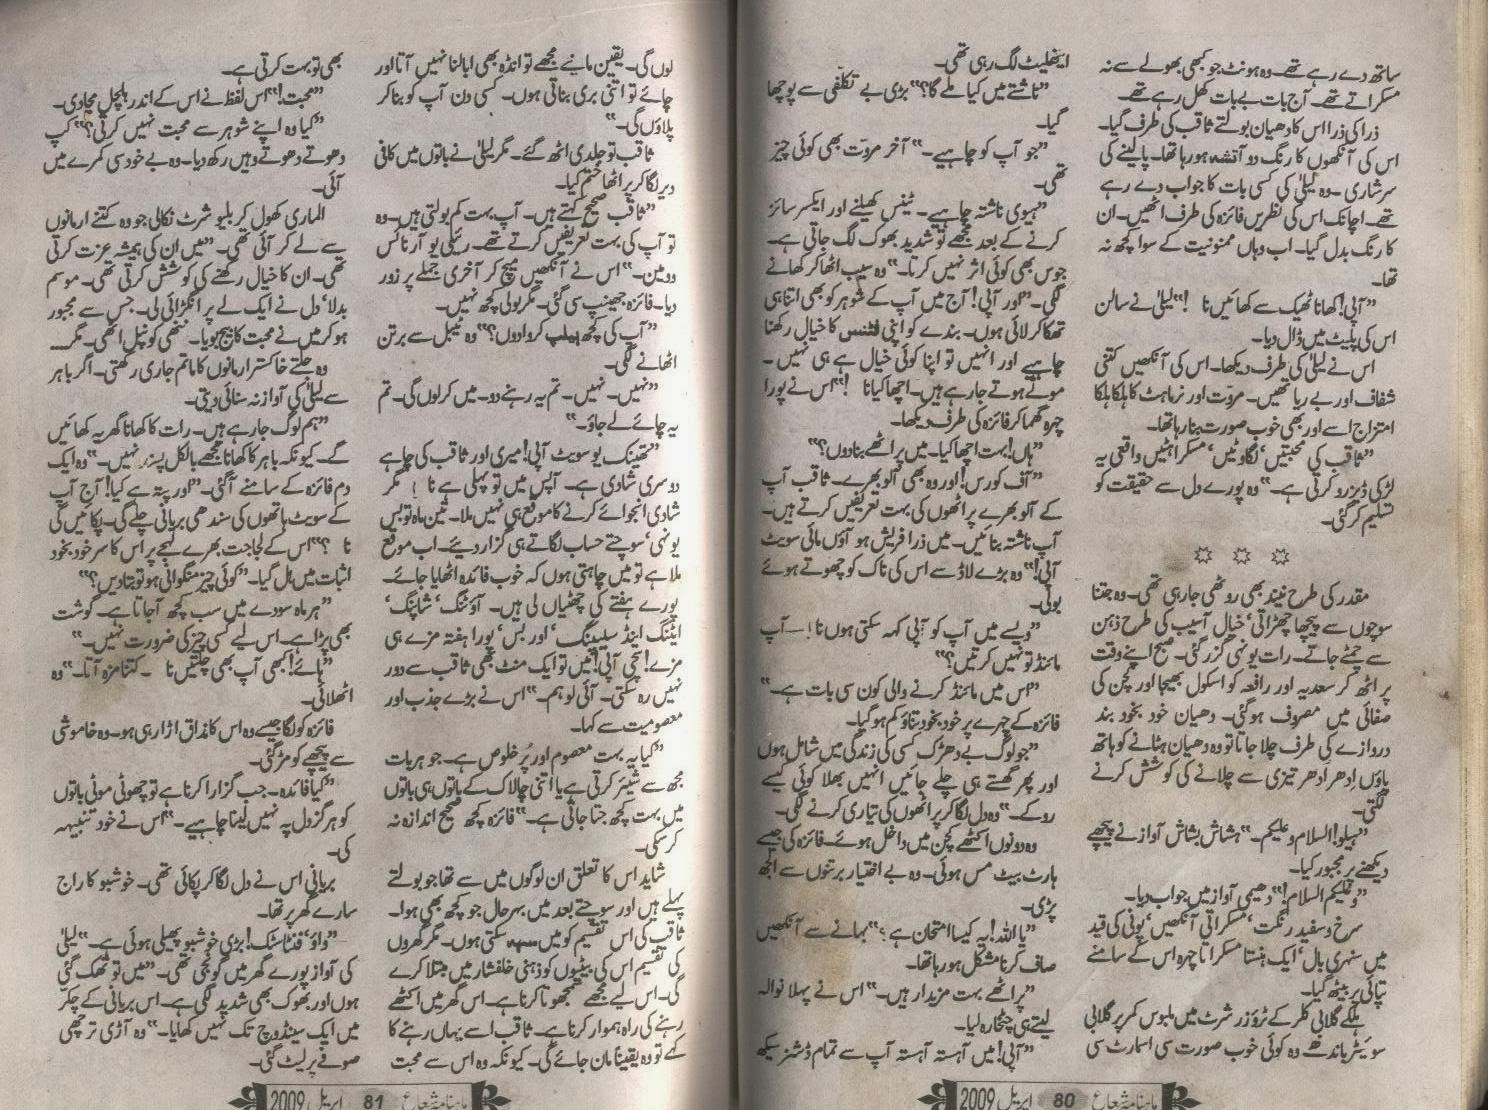 ساتھ دے رہے تھے۔ وہ ہونٹ جو کبھی بھولے سے نہ
مسکراتے تھے۔ آج بات بے بات کھل رہے تھے۔
ذرا کی ذرا اس کا دھیان بولتے ثاقب کی طرف گیا۔
اس کی آنکھوں کا رنگ دو آتشہ ہو رہا تھا۔ پا لینے کی
سرشاری۔ وہ لیلیٰ کی کسی بات کا جواب دے رہے
تھے۔ اچانک اس کی نظریں فائزہ کی طرف اٹھیں۔ ان
کا رنگ بدل گیا۔ اب وہاں ممنونیت کے سوا کچھ نہ
تھا۔
”آپی! کھانا ٹھیک سے کھائیں نا !“ لیلیٰ نے سالن
اس کی پلیٹ میں ڈال دیا۔
اس نے لیلیٰ کی طرف دیکھا۔ اس کی آنکھیں کتنی
شفاف اور بے ریا تھیں۔ مروّت اور نرماہٹ کا ہلکا ہلکا
امتزاج اسے اور بھی خوب صورت بنا رہا تھا۔
”ثاقب کی محبتیں‘ لگاوٹیں‘ مسکراہٹیں واقعی یہ
لڑکی ڈیزرو کرتی ہے۔“ وہ پورے دل سے حقیقت کو
تسلیم کر گئی۔
مقدر کی طرح نیند بھی روٹھی جا رہی تھی۔ وہ جتنا
سوچوں سے پیچھا چھڑاتی‘ خیال آسیب کی طرح ذہن
سے چمٹے جاتے۔ رات یونہی گزر گئی۔ صبح اپنے وقت
پر اٹھ کر سعدیہ اور رافعہ کو اسکول بھیجا اور کچن کی
صفائی میں مصروف ہو گئی۔ دھیان خود بخود بند
دروازے کی طرف چلا جاتا تو وہ دھیان ہٹانے کو ہاتھ
پاؤں اِدھر اُدھر تیزی سے چلانے کی کوشش کرنے
لگتی۔
”ہیلو! السلام و علیکم۔“ ہشاش بشاش آواز نے پیچھے
دیکھنے پر مجبور کیا۔
”و علیکم السلام!“ دھیمی آواز میں جواب دیا۔
سرخ و سفید رنگت‘ مسکراتی آنکھیں‘ پونی کی قید
میں سنہری بال‘ ایک ہنستا مسکراتا چہرہ اس کے سامنے
تپائی پر بیٹھ گیا۔
ہلکے گلابی کلر کے ٹروزر شرٹ میں ملبوس کمر پر گلابی
سوئیٹر باندھے وہ کوئی خوب صورت سی اسمارٹ سی
ایتھلیٹ لگ رہی تھی۔
”ناشتے میں کیا ملے گا؟“ بڑی بے تکلفی سے پوچھا
گیا۔
”جو آپ کو چاہیے۔“ آخر مروّت بھی کوئی چیز
تھی۔
”ہیوی ناشتہ چاہیے۔ ٹینس کھیلنے اور ایکسرسائز
کرنے کے بعد مجھے تو شدید بھوک لگ جاتی ہے۔
جوس بھی کوئی اثر نہیں کرتا۔“ وہ سیب اٹھا کر کھانے
لگی۔ ”اور آپی! آج میں آپ کے شوہر کو بھی اتنا ہی
تھکا کر لائی ہوں۔ بندے کو اپنی فٹنس کا خیال رکھنا
چاہیے اور انہیں تو اپنا کوئی خیال ہے ہی نہیں۔
موٹے ہوتے جا رہے ہیں۔ اچھا کیا نا !“ اس نے پورا
چہرہ گھما کر فائزہ کی طرف دیکھا۔
”ہاں! بہت اچھا کیا۔ میں پراٹھے بنا دوں؟“
”آف کورس! اور وہ بھی آلو بھرے۔ ثاقب آپ
کے آلو بھرے پراٹھوں کی بہت تعریفیں کرتے ہیں۔
آپ ناشتہ بنائیں۔ میں ذرا فریش ہو آؤں مائی سویٹ
آپی!“ وہ بڑے لاڈ سے اس کی ناک کو چھوتے ہوئے
بولی۔
”ویسے میں آپ کو آپی کہہ سکتی ہوں نا! — آپ
مائنڈ تو نہیں کرتیں؟“
”اس میں مائنڈ کرنے والی کون سی بات ہے۔“
فائزہ کے چہرے پر خود بخود تناؤ کم ہو گیا۔
”جو لوگ بے دھڑک کسی کی زندگی میں شامل ہوں
اور پھر گھستے ہی چلے جائیں انہیں بھلا کوئی کیسے
روکے۔“ وہ دل لگا کر پراٹھوں کی تیاری کرنے لگی۔
وہ دونوں اکٹھے کچن میں داخل ہوئے۔ فائزہ کی جیسے
ہارٹ بیٹ مس ہوئی۔ وہ بے اختیار برتنوں سے الجھ
پڑی۔
”یا اللہ! یہ کیسا امتحان ہے؟“ بہانے سے آنکھیں
صاف کرنا مشکل ہو رہا تھا۔
”پراٹھے بہت مزیدار ہیں۔“ اس نے پہلا نوالہ
لیتے ہی چٹخارہ لیا۔
”آپی! میں آہستہ آہستہ آپ سے تمام ڈشنز سیکھ
ماہنامہ شعاع 80 اپریل 2009
لوں گی۔ یقین مانیے مجھے تو انڈہ بھی ابالنا نہیں آتا اور
چائے تو اتنی بری بناتی ہوں۔ کسی دن آپ کو بنا کر
پلاؤں گی۔“
ثاقب تو جلدی اٹھ گئے۔ مگر لیلیٰ نے باتوں میں کافی
دیر لگا کر پراٹھا ختم کیا۔
”ثاقب صحیح کہتے ہیں۔ آپ بہت کم بولتی ہیں۔ وہ
تو آپ کی بہت تعریفیں کرتے تھے۔ رئیلی یو آر نائس
وومین۔“ اس نے آنکھیں میچ کر آخری جملے پر زور
دیا۔ فائزہ جھینپ سی گئی۔ مگر بولی کچھ نہیں۔
”آپ کی کچھ ہیلپ کروا دوں؟“ وہ ٹیبل سے برتن
اٹھانے لگی۔
”نہیں۔ نہیں۔ تم یہ رہنے دو۔ میں کر لوں گی۔ تم
یہ چائے لے جاؤ۔“
”تھینک یو سویٹ آپی! میری اور ثاقب کی چاہے
دوسری شادی ہے۔ آپس میں تو پہلی ہے نا ! مگر
شادی انجوائے کرنے کا موقع ہی نہیں ملا۔ تین ماہ تو بس
یونہی‘ سوچتے حساب لگاتے ہی گزار دیے۔ اب موقع
ملا ہے تو میں چاہتی ہوں کہ خوب فائدہ اٹھایا جائے۔
پورے ہفتے کی چھٹیاں لی ہیں۔ آؤٹنگ‘ شاپنگ‘
ایٹنگ اینڈ سلیپنگ‘ اور بس‘ پورا ہفتہ مزے ہی
مزے! سچی آپی! میں تو ایک منٹ بھی ثاقب سے دور
نہیں رہ سکتی۔ آئی لو ہم۔“ اس نے بڑے جذب اور
معصومیت سے کہا۔
”کیا یہ بہت معصوم اور پُر خلوص ہے۔ جو ہر بات
مجھ سے شیئر کرتی ہے یا اتنی چالاک کے باتوں ہی باتوں
میں بہت کچھ جتا جاتی ہے۔“ فائزہ کچھ صحیح اندازہ نہ
کر سکی۔
شاید اس کا تعلق ان لوگوں میں سے تھا جو بولتے
پہلے ہیں اور سوچتے بعد میں بہرحال جو کچھ بھی ہوا۔
ثاقب کی اس تقسیم کو میں سہہ سکتی ہوں۔ مگر گھروں
کی تقسیم اس کی بیٹیوں کو ذہنی خلفشار میں مبتلا کرے
گی۔ اس لیے مجھے سمجھوتا کرنا ہے۔ اس گھر میں اکٹھے
رہنے کی راہ ہموار کرنا ہے۔ ثاقب اسے یہاں رہنے کا
کہے تو وہ یقیناً مان جائے گی۔ کیونکہ وہ اس سے محبت
بھی تو بہت کرتی ہے۔
”محبت!“ اس لفظ نے اس کے اندر ہلچل مچا دی۔
”کیا وہ اپنے شوہر سے محبت نہیں کرتی؟“ کپ
دھوتے دھوتے وہیں رکھ دیا۔ وہ بے خود سی کمرے میں
آئی۔
الماری کھول کر بلیو شرٹ نکالی جو وہ کتنے ارمانوں
سے لے کر آئی تھی۔ ”میں ان کی ہمیشہ عزت کرتی
تھی۔ ان کا خیال رکھنے کی کوشش کرتی تھی۔ موسم
بدلا‘ دل نے ایک لے پر انگڑائی لی۔ جس سے مجبور
ہو کر میں نے محبت کا بیج بویا۔ ننھی کونپل اٹھی۔ مگر۔۔۔
وہ جلتے خاکستر ارمانوں کا ماتم جاری رکھتی۔ اگر باہر
سے لیلیٰ کی آواز نہ سنائی دیتی۔
”ہم لوگ جا رہے ہیں۔ رات کا کھانا گھر پہ کھائیں
گے۔ کیونکہ باہر کا کھانا مجھے بالکل پسند نہیں۔“ وہ ایک
دم فائزہ کے سامنے آ گئی۔ ”اور پتہ ہے کیا! آج آپ
کے سویٹ ہاتھوں کی سندھی بریانی چلے گی۔ پکائیں گی
نا ؟“ اس کے لجاجت بھرے لہجے پر اس کا سر خود بخود
اثبات میں ہل گیا۔ ”کوئی چیز منگوانی ہو تو بتا دیں؟“
”ہر ماہ سودے میں سب کچھ آ جاتا ہے۔ گوشت
بھی پڑا ہے۔ اس لیے کسی چیز کی ضرورت نہیں۔“
”ہائے! کبھی آپ بھی چلتیں نا ۔ کتنا مزہ آتا۔“ وہ
اٹھلائی۔
فائزہ کو لگا جیسے وہ اس کا مذاق اڑا رہی ہو۔ وہ خاموشی
سے پیچھے کو مڑ گئی۔
”کیا فائدہ۔ جب گزارا کرنا ہے تو چھوٹی موٹی باتوں
کو ہر گز دل پہ نہیں لینا چاہیے۔“ اس نے خود تنبیہہ
کی۔
بریانی اس نے دل لگا کر پکائی تھی۔ خوشبو کا راج
سارے گھر پر تھا۔
”واؤ‘ فنٹاسٹک! بڑی خوشبو پھیلی ہوئی ہے۔“ لیلیٰ
کی آواز پورے گھر میں گونجی تھی۔ ”میں تو تھک گئی
ہوں اور بھوک بھی شدید لگی ہے۔ اس بریانی کے چکر
میں ایک سینڈوچ تک نہیں کھایا۔“ وہ آڑی ترچھی
صوفے پر لیٹ گئی۔
ماہنامہ شعاع 81 اپریل 2009